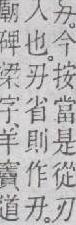 今按當是從刃
人也。刅省則作刃。
朝碑梁字羊竇道